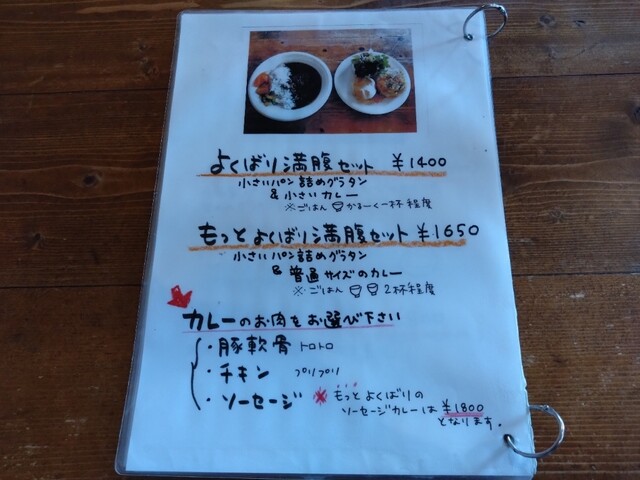 よくばり満腹セット ¥1400
小さいパン詰めグラタン
& 小さいカレー
※ごはん かるーく一杯程度
もっとよくばり満腹セット ¥1650
小さいパン詰めグラタン
& 普通サイズのカレー
※ごはん 2杯程度
カレーのお肉をお選び下さい
・豚軟骨 トロトロ
・チキン プリプリ
・ソーセージ ※もっとよくばりの
ソーセージカレーは ¥1800
となります。